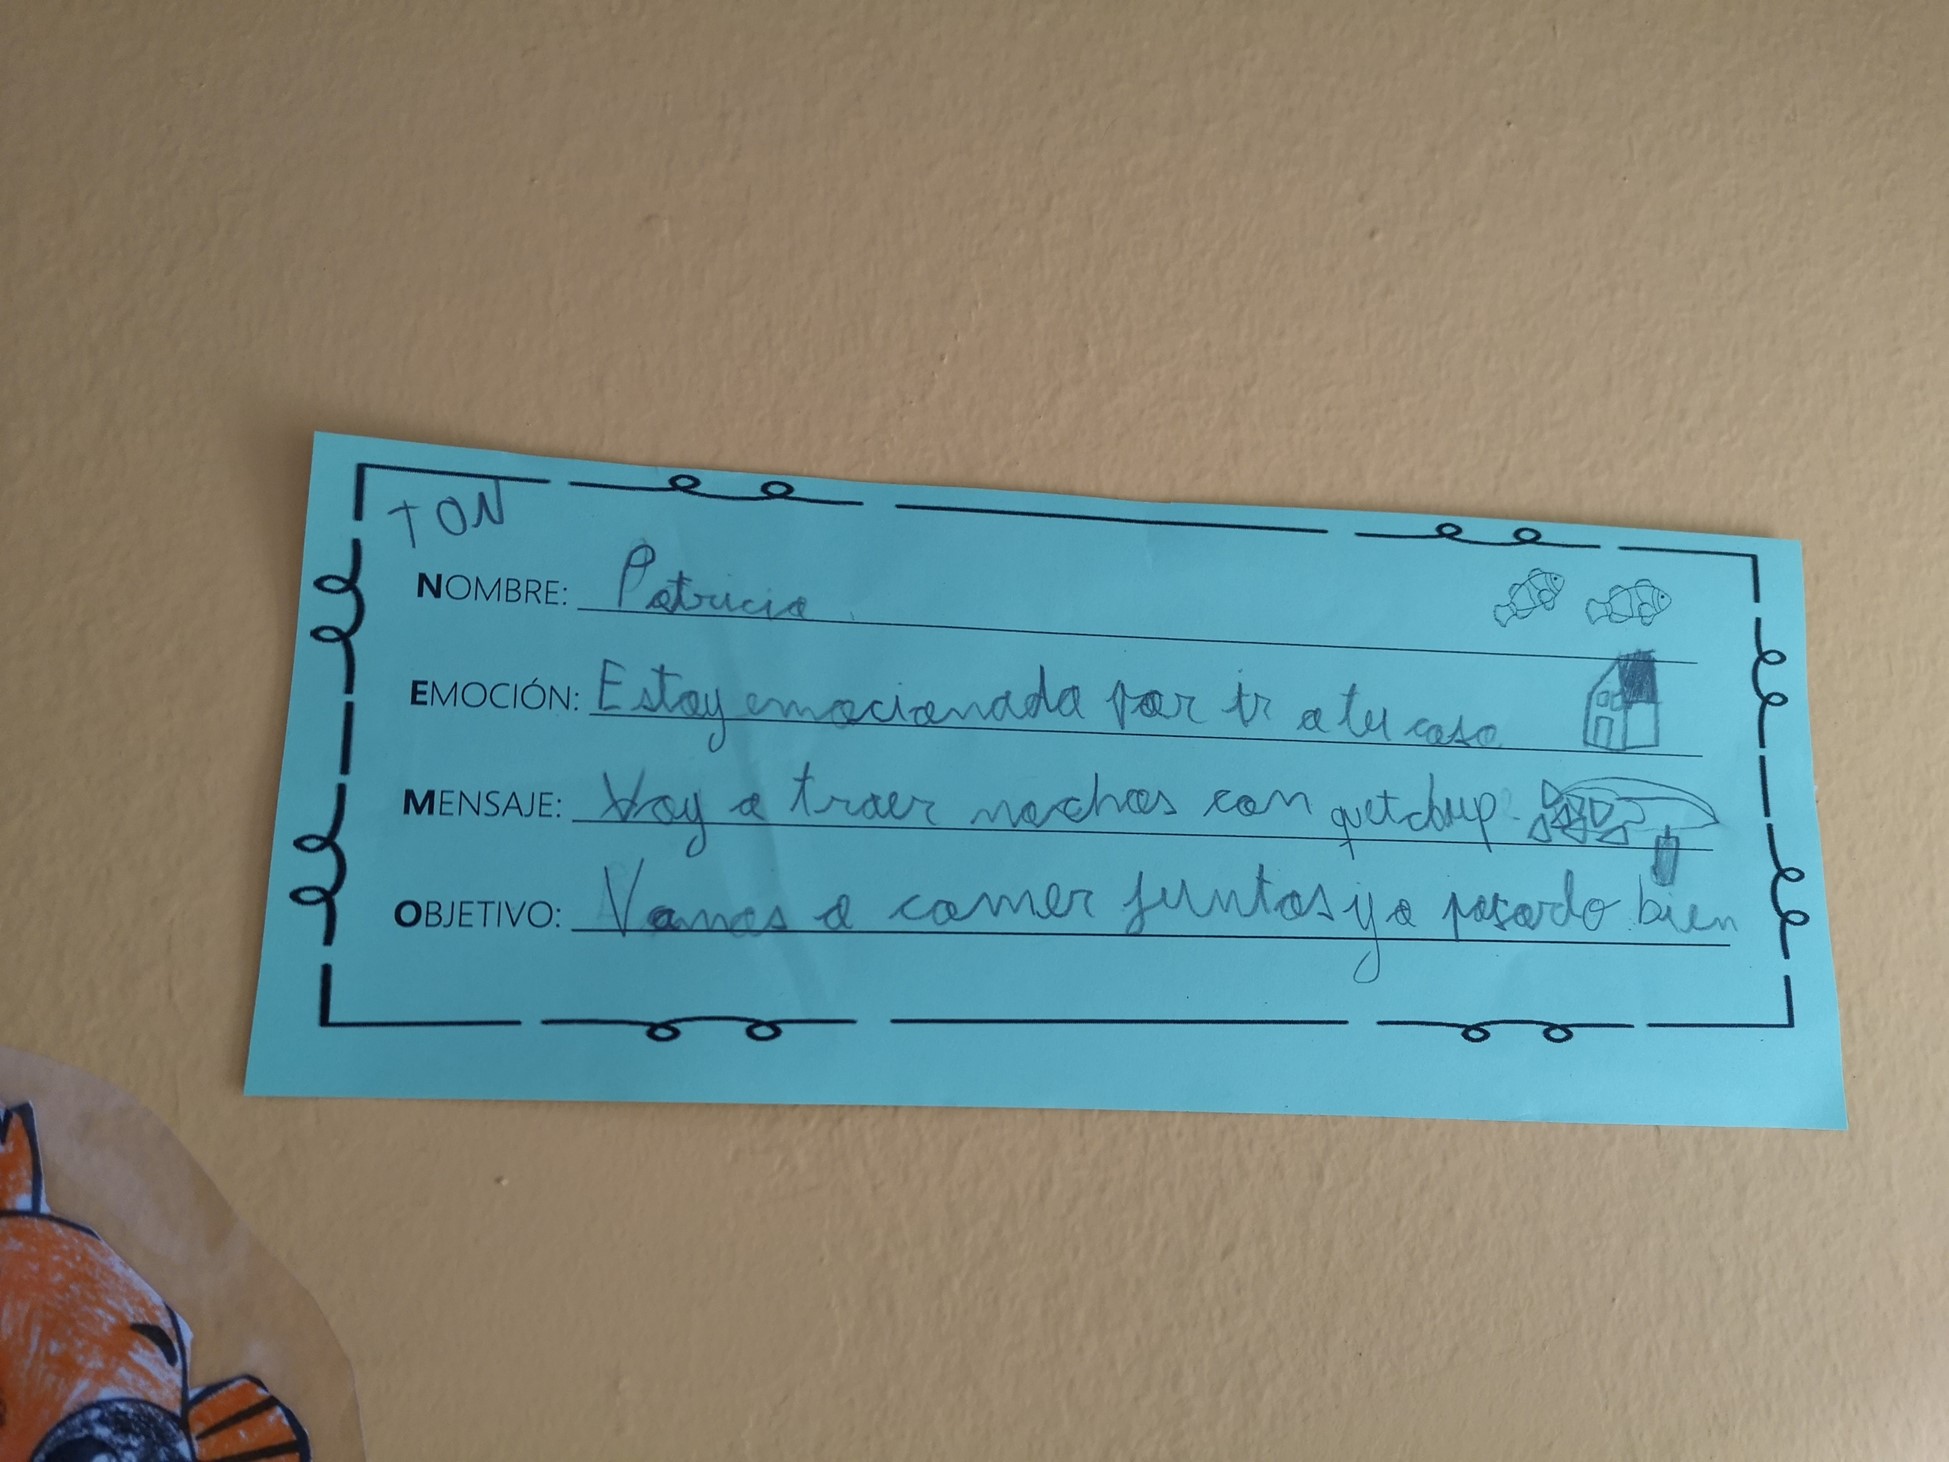 TON
NOMBRE: Patricia
EMOCIÓN: Estoy emocionada por ir a tu casa
MENSAJE: Voy a traer nachos con quetchup.
OBJETIVO: Vamos a comer juntos y a pasarlo bien